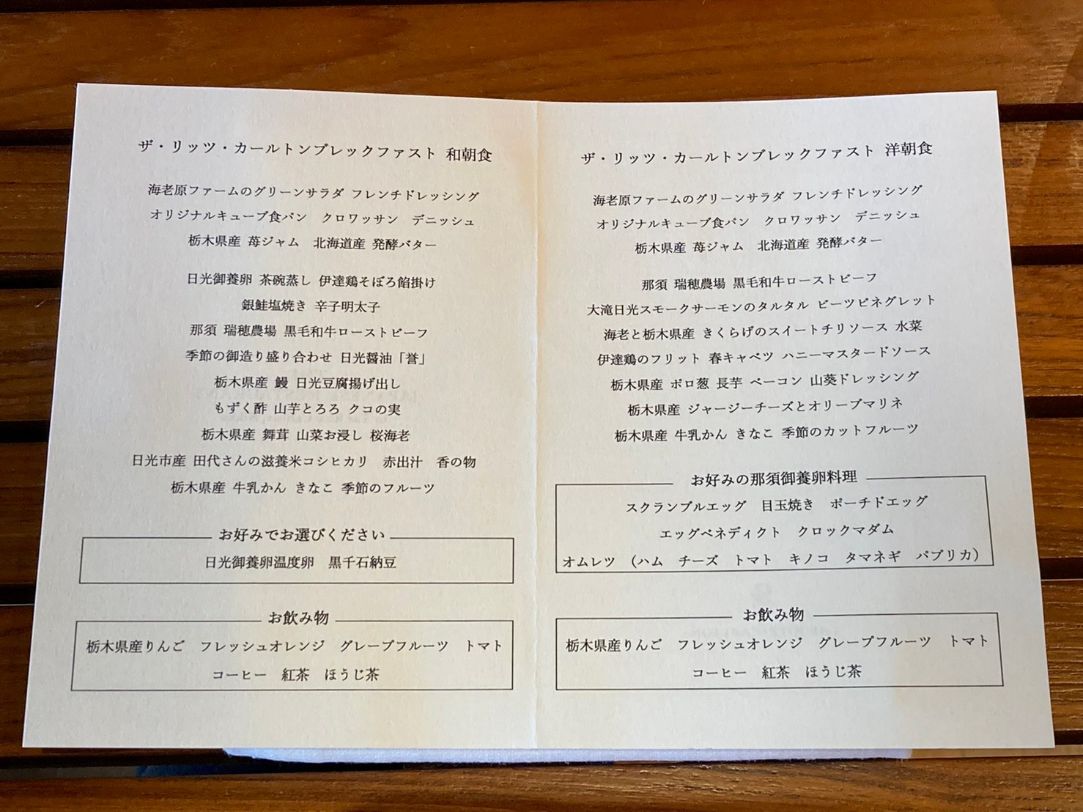 ザ・リッツ・カールトンブレックファスト 和朝食
海老原ファームのグリーンサラダ フレンチドレッシング
オリジナルキューブ食パン クロワッサン デニッシュ
栃木県産 苺ジャム 北海道産 発酵バター
日光御養卵 茶碗蒸し 伊達鶏そぼろ餡掛け
銀鮭塩焼き 辛子明太子
那須 瑞穂農場 黒毛和牛ローストビーフ
季節の御造り盛り合わせ 日光醤油「誉」
栃木県産 鰻 日光豆腐揚げ出し
もずく酢 山芋とろろ クコの実
栃木県産 舞茸 山菜お浸し 桜海老
日光市産 田代さんの滋養米コシヒカリ 赤出汁 香の物
栃木県産 牛乳かん きなこ 季節のフルーツ
お好みでお選びください
日光御養卵温度卵 黒千石納豆
お飲み物
栃木県産りんご フレッシュオレンジ グレープフルーツ トマト
コーヒー 紅茶 ほうじ茶
ザ・リッツ・カールトンブレックファスト 洋朝食
海老原ファームのグリーンサラダ フレンチドレッシング
オリジナルキューブ食パン クロワッサン デニッシュ
栃木県産 苺ジャム 北海道産 発酵バター
那須 瑞穂農場 黒毛和牛ローストビーフ
大滝日光スモークサーモンのタルタル ビーツビネグレット
海老と栃木県産 きくらげのスイートチリソース 水菜
伊達鶏のフリット 春キャベツ ハニーマスタードソース
栃木県産 ポロ葱 長芋 ベーコン 山葵ドレッシング
栃木県産 ジャージーチーズとオリーブマリネ
栃木県産 牛乳かん きなこ 季節のカットフルーツ
お好みの那須御養卵料理
スクランブルエッグ 目玉焼き ポーチドエッグ
エッグベネディクト クロックマダム
オムレツ (ハム チーズ トマト キノコ タマネギ パプリカ)
お飲み物
栃木県産りんご フレッシュオレンジ グレープフルーツ トマト
コーヒー 紅茶 ほうじ茶